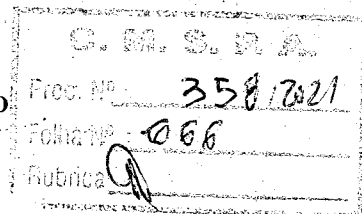 C. M. S. R. A.
Proc. Nº 358/2021
Folha Nº 066
Rubrica